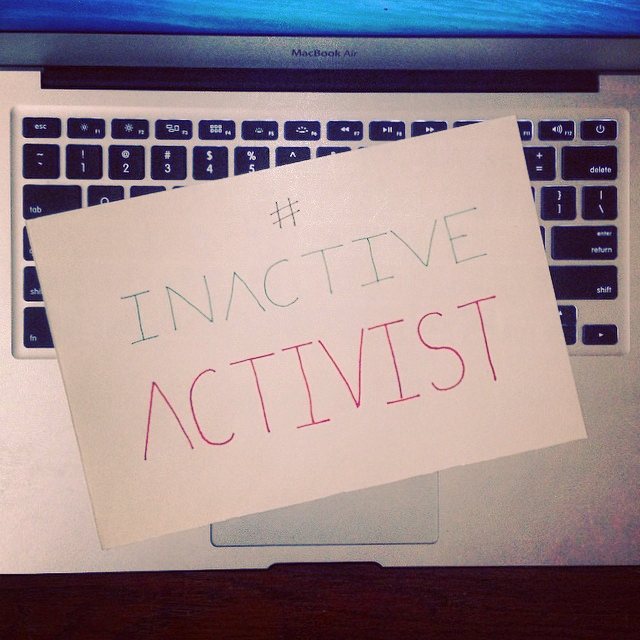 MacBook Air
esc F1 F2 F3 F4 F5 F6 F7 F8 F9 F11 F12
~ ! 1 @ 2 # 3 $ 4 % 5 ^ + = delete
tab } ] | \
enter return
shift
fn
#
INACTIVE
ACTIVIST